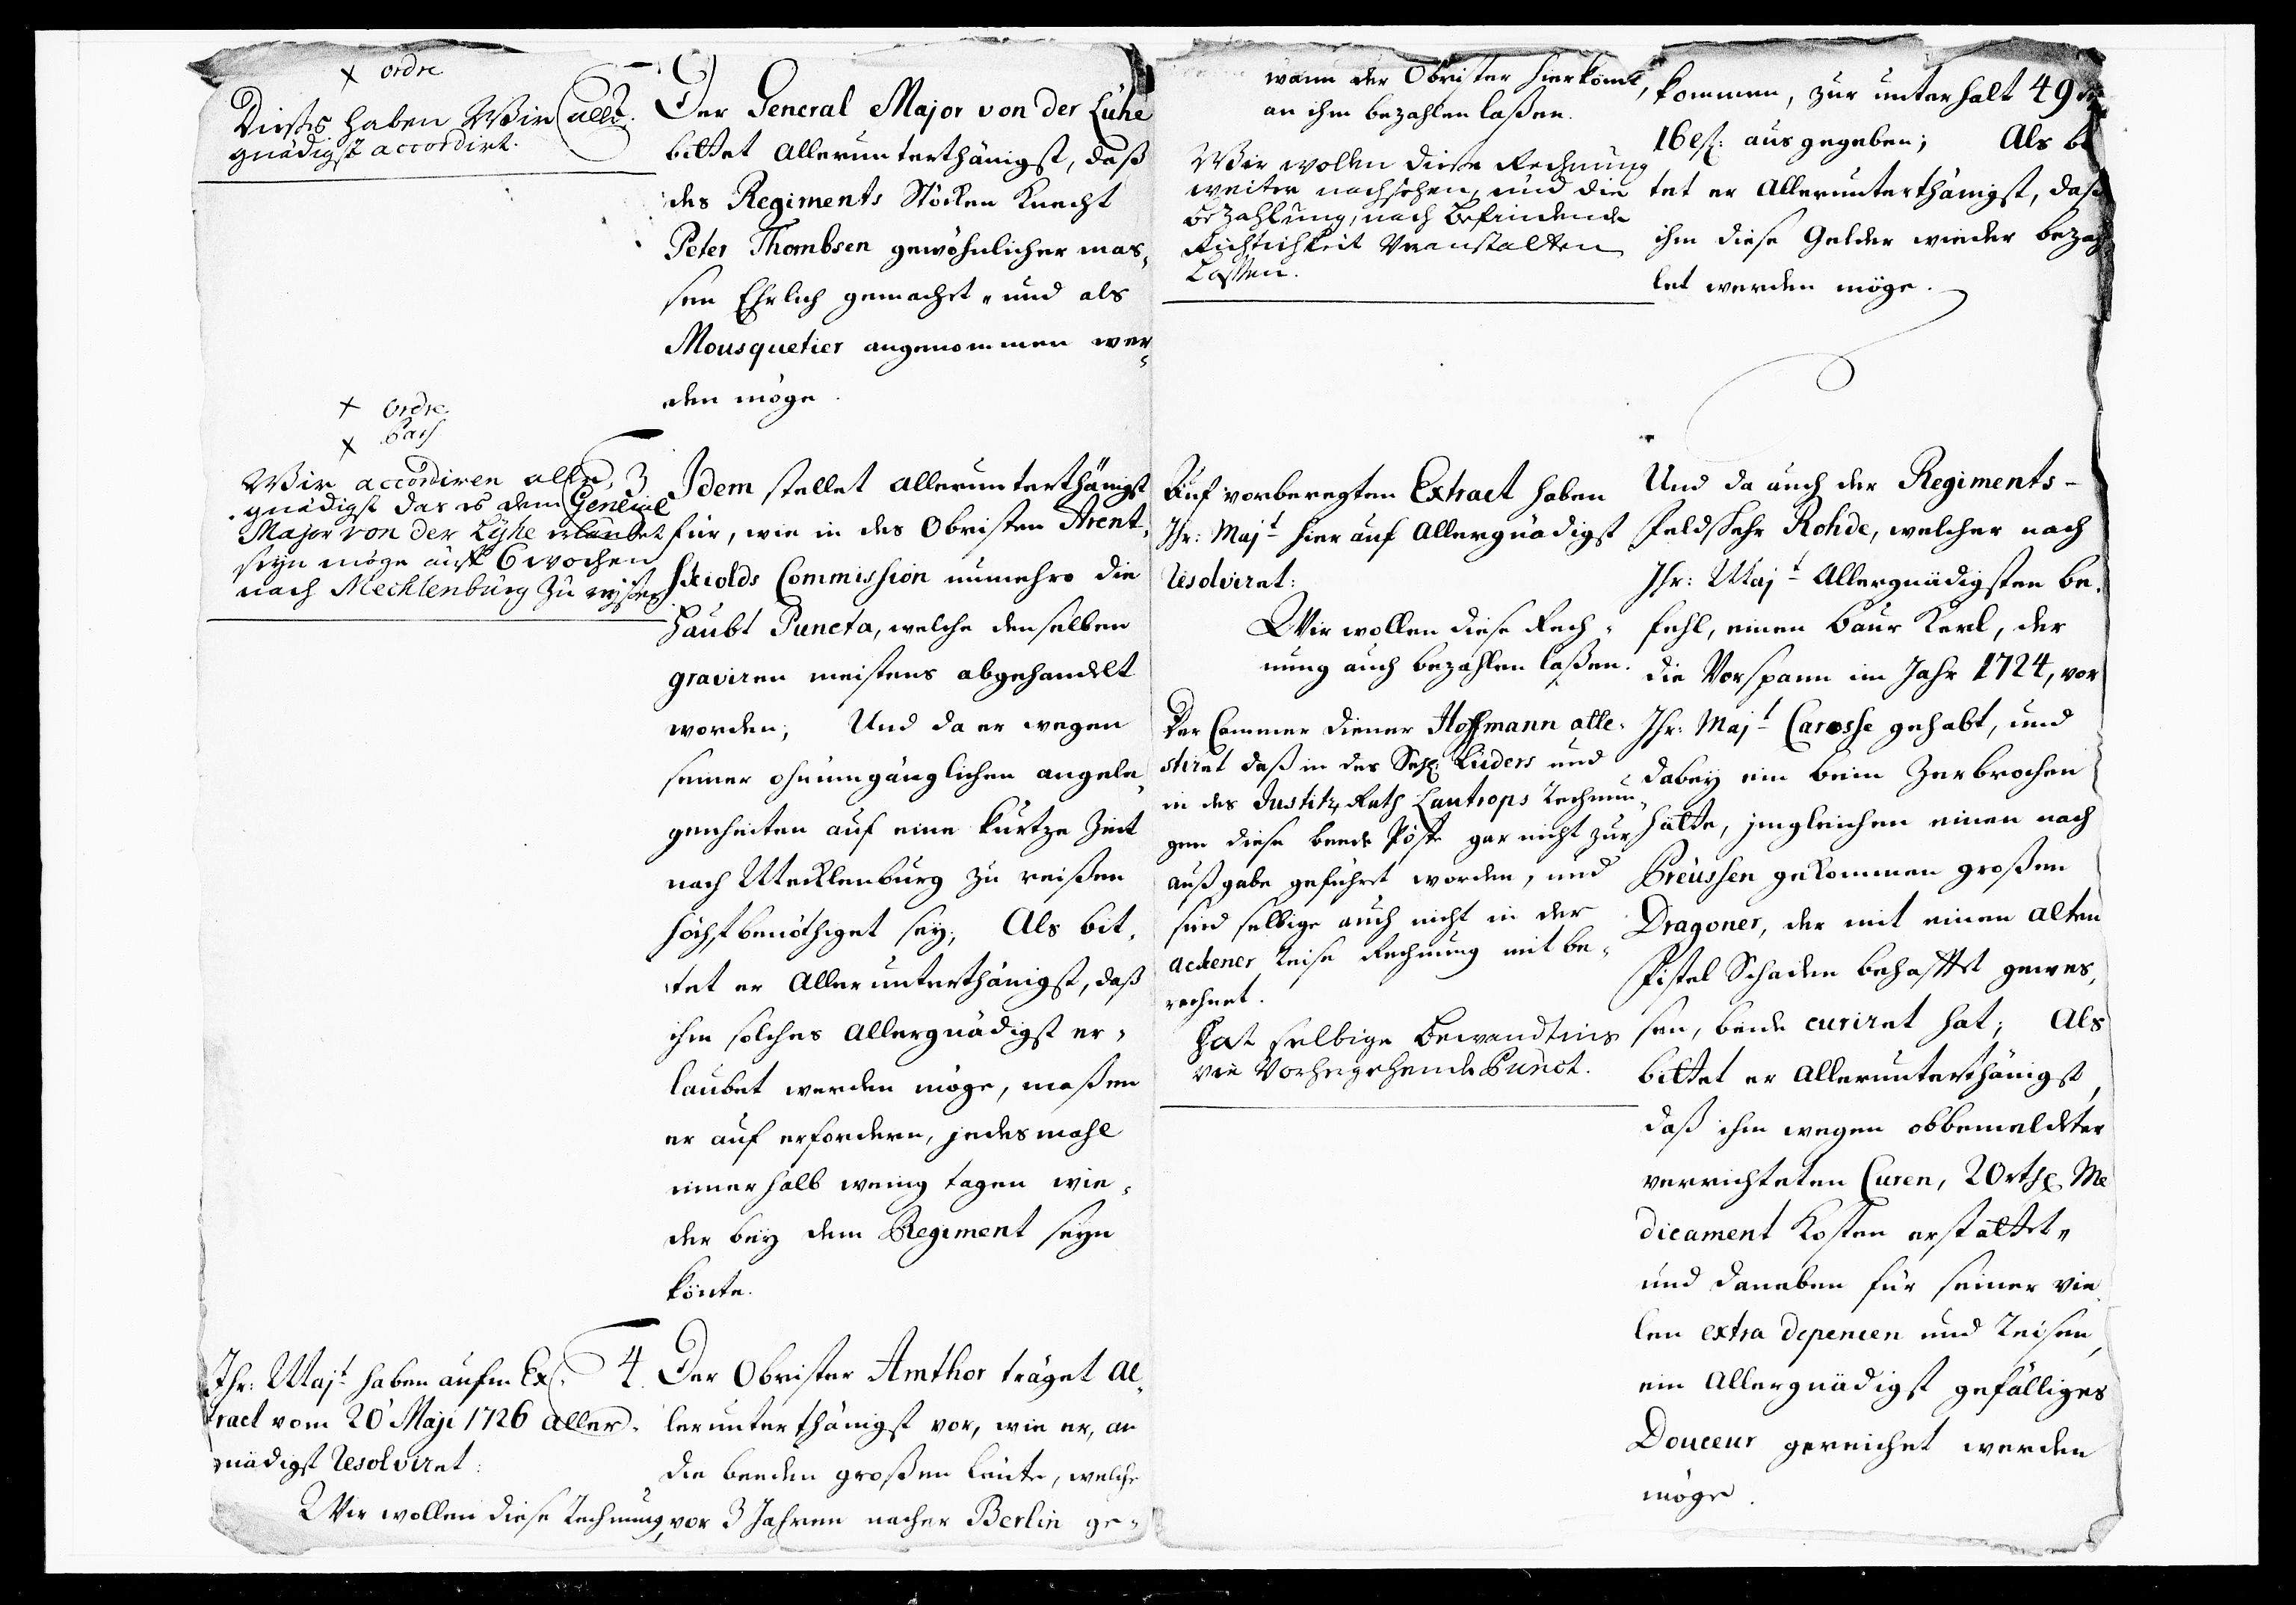 x ordre
Dießes haben Wir aller-
gnädigst accordirt.
2
Der General Major von der Lühe
bittet allerunterthänigst, daß
des Regiments Stöcken Knecht
Peter Thombsen gewöhnlicher mas,
sen Ehrlich gemacht, und als
Mousquetier angenommen wer,
den möge.
x ordre
x Pass
Wir accordiren aller-
gnädigst das es dem General
Major von der Lyhe erlaubet
seyn möge auff 6 wochen
nach Mecklenburg zu reyßen
3
Idem stellet allerunterthänigst
für, wie in des Obristen Arent,
skiolds Commission numehro die
Haubt Puncta, welche denselben
graviren meistens abgehandelt
worden; Und da er wegen
seiner ohnumgänglichen angele,
genheiten auf eine kurtze Zeit
nach Mecklenburg zu reißen
höchst benöthiget sey; Als bit,
tet er allerunterthänigst, daß
ihm solches allergnädigst er,
laubet werden möge, maßen
er auf erfordern, jedesmahl
innerhalb wenig tagen wie,
der bey dem Regiment seyn
könte.
Ihr: Majt haben aufm Ex,
tract vom 20 Maji 1726 aller,
gnädigst Resolviret:
Wir wollen diese Rechnung,
4.
Der Obrister Amthor träget al,
lerunterthänigst vor, wie er, an
die beeden großen leute, welche
vor 3 Jahren nacher Berlin ge,
wann der Obrister hierkömt,
an ihm bezahlen laßen.
Wir wollen diese Rechnung
weiter nachsehen, und die
bezahlung, nach befindende
Richtichkeit Veranstalten
Lassen.
kommen, zur unterhalt 49
16 ß. ausgegeben; Als bi
tet er allerunterthänigst, daß
ihm diese Gelder wieder bezah,
let werden möge.
Auf vorberegten Extract haben
Ihr: Majt hierauf allergnädigst
Resolviret:
Wir wollen diese Rech,
nung auch bezahlen laßen.
Der Cammer diener Hoffmann atte,
stiret daß in des Lüders und
in des Justitz Rath Lautrops Rechnun,
gen diese beede Poste gar nicht zur
ausgabe geführet worden, und
sind selbige auch nicht in der
Ackener Reise Rechnung mit be,
rechnet.
Hat selbige bewandtnis
wie Vorhergehende Punct.
Und da auch der Regiments-
Feldscher Rohde, welcher nach
Ihr: Majt Allergnädigsten be,
fehl, einen Baur Kerl, der
die Vorspann im Jahr 1724, vor
Ihr: Majt Carosse gehabt, und
dabey ein bein Zerbrochen
hatte, imgleichen einen nach
Preussen gekommen großen
Dragoner, der mit einen alten
Fistel Schaden behafftet gewes,
sen, beide curiret hat; Als
bittet er allerunterthänigst,
daß ihm wegen obbemeldter
verrichteten Curen, 20 rthl Me
dicament Kosten erstattet,
und daneben für seiner vie
len extra depencen und Reisen,
ein Allergnädigst gefälliges
Douceur gereichet werden
möge.